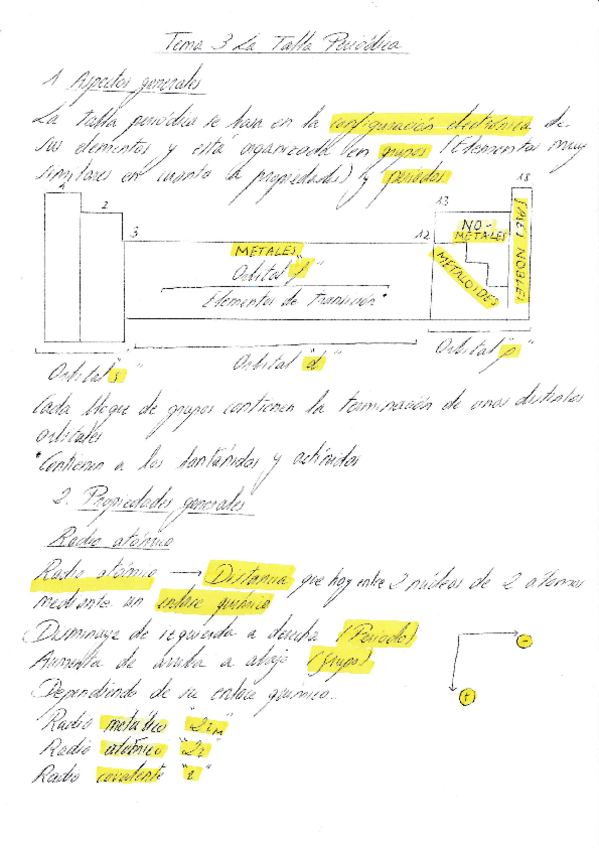 Tema 3 La Tabla Periódica
1 Aspectos generales
La tabla periódica se basa en la configuración electrónica de
sus elementos y está organizada en grupos (Elementos muy
similares en cuanto a propiedades) y periodos
1
2
3
12
13
18
NO-
METALES
GASES NOBLES
METALES
METALOIDES
Orbital "f"
Elementos de transición*
Orbital "s"
Orbital "d"
Orbital "p"
Cada bloque de grupos contienen la terminación de unos distintos
orbitales
*Contienen a los lantánidos y actínidos
2. Propiedades generales
Radio atómico
Radio atómico → Distancia que hay entre 2 núcleos de 2 átomos
mediante un enlace químico
Disminuye de izquierda a derecha (Periodo)
Aumenta de arriba a abajo (Grupo)
-
+
Dependiendo de su enlace químico..
Radio metálico "2rm"
Radio atómico "2r"
Radio covalente "r"